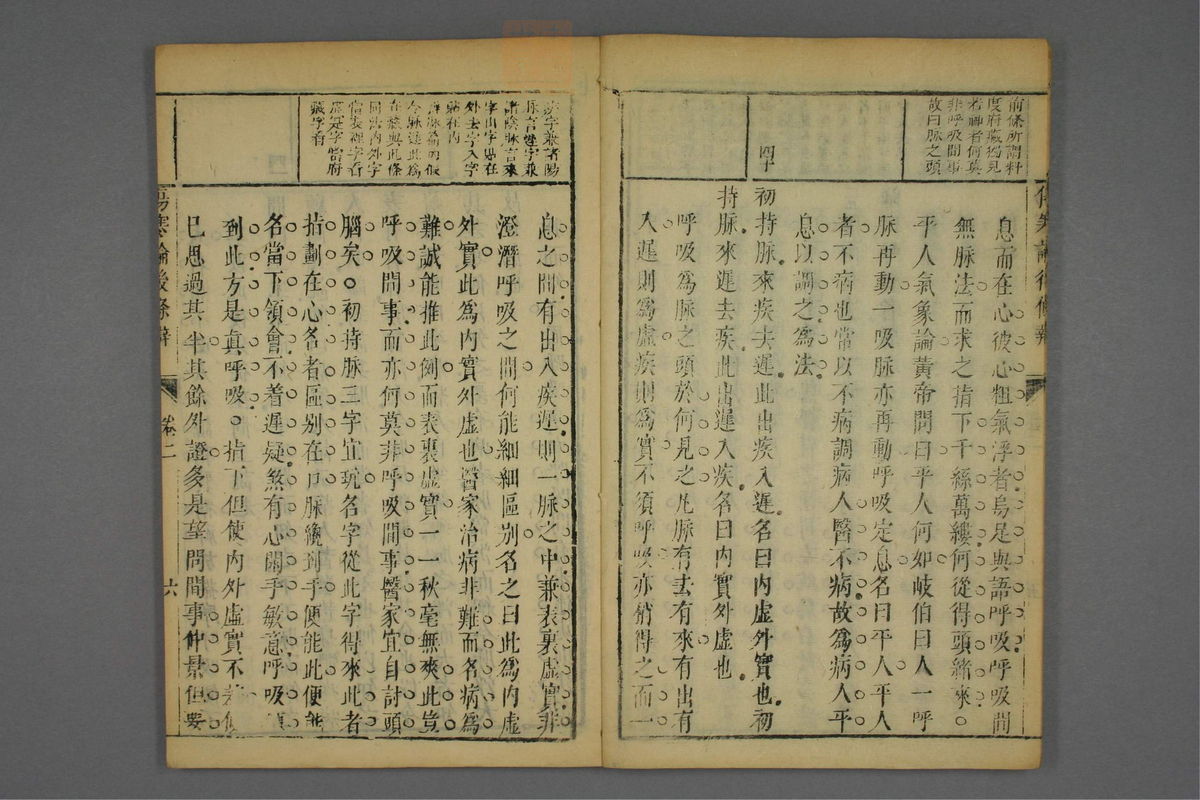 前條所謂料
度府藏獨見
若神者何莫
非呼吸間事
故曰脉之頭
四十
息而在心彼心粗氣浮者烏足與語呼吸呼吸間
無脉法而求之指下千絲萬縷何從得頭緒來○
平人氣象論黃帝問曰平人何如岐伯曰人一呼
脉再動一吸脉亦再動呼吸定息名曰平人平人
者不病也常以不病調病人醫不病故爲病人平
息以調之爲法
初持脉來疾去遲此出疾入遲名曰內虛外實也初
持脉來遲去疾此出遲入疾名曰內實外虛也
呼吸爲脉之頭於何見之凡脉有去有來有出有
入遲則爲虛疾則爲實不須呼吸亦稍得之而一
疾字兼諸陽
脉言遲字兼
諸陰脉言來
字出字貼在
外去字入字
貼在內
傷寒論後條辨
卷二
六
息之間有出入疾遲則一脉之中兼表裏虛實非
澄潛呼吸之間何能細細區別名之曰此爲內虛
外實此爲內實外虛也醫家治病非難而名病爲
難誠能推此例而表裏虛實一一秋毫無爽此豈
呼吸間事而亦何莫非呼吸間事醫家宜自討頭
腦矣○初持脉三字宜玩名字從此字得來此者
指劃在心名者區別在口脉纔到手便能此便能
名當下領會不着遲疑煞有心閒手敏意呼吸
到此方是眞呼吸○指下但使內外虛實不
已思過其半其餘外證多是望問間事仲景但要